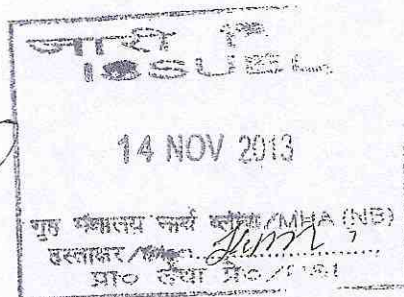 जारी
ISSUED
14 NOV 2013
गृह मंत्रालय नार्थ ब्लॉक/MHA (NB)
हस्ताक्षर/